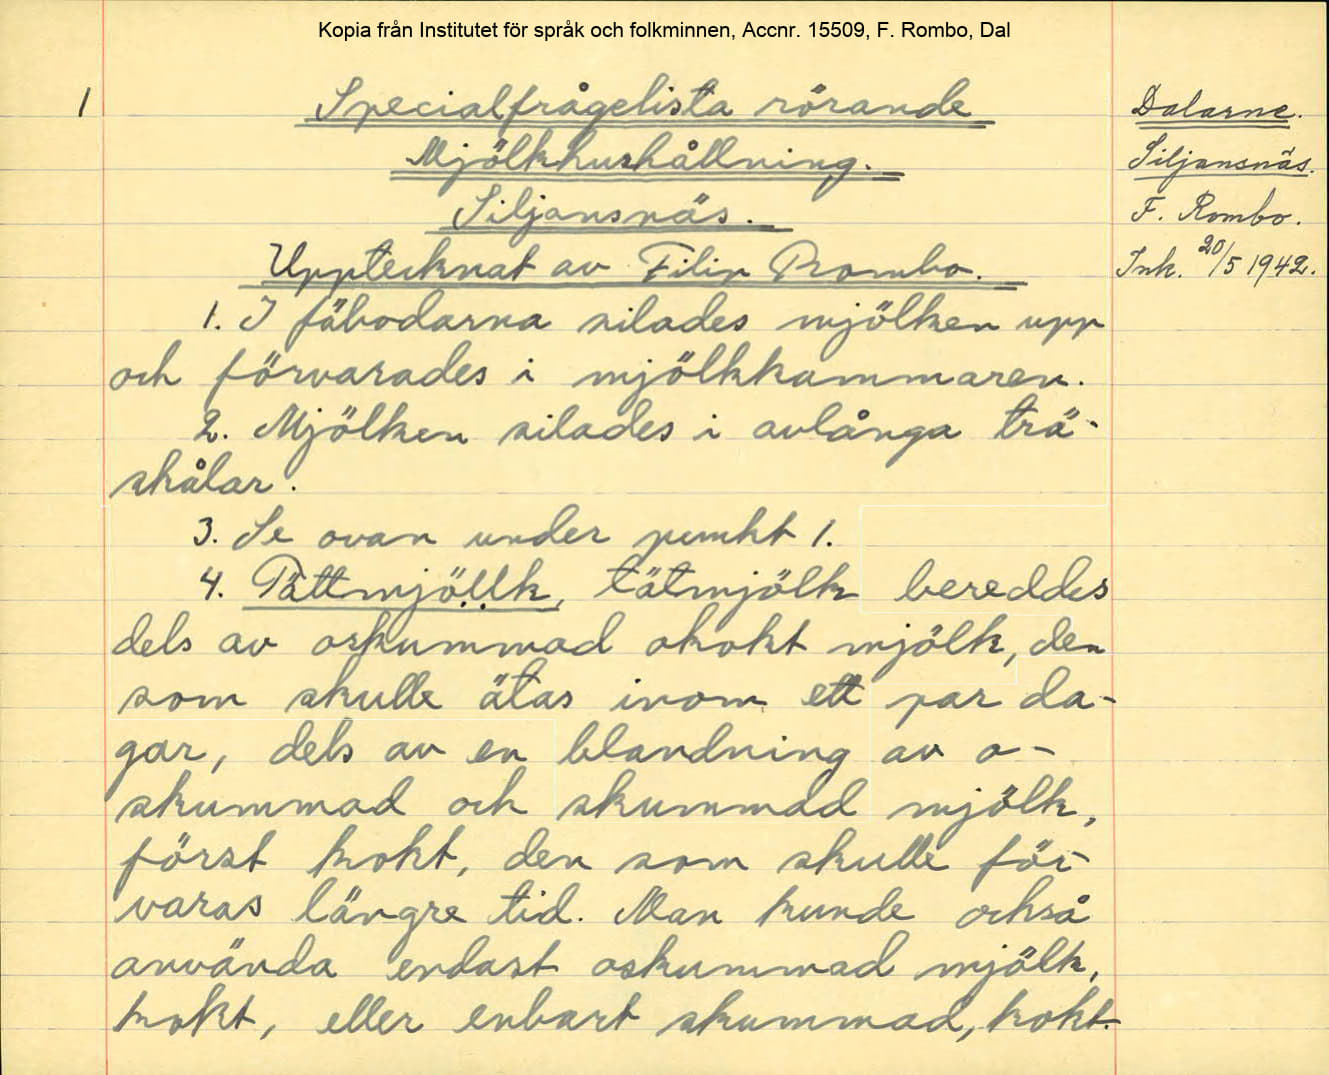 Kopia från Institutet för språk och folkminnen, Accnr. 15509, F. Rombo, Dal
1
Specialfrågelista rörande
Mjölkhushållning.
Siljansnäs.
Upptecknat av Filip Rombo.
Dalarne.
Siljansnäs.
F. Rombo.
Ink. 20/5 1942.
1. I fäbodarna silades mjölken upp
och förvarades i mjölkkammaren.
2. Mjölken silades i avlånga trä-
skålar.
3. Se ovan under punkt 1.
4. Tättmjöllk, tätmjölk bereddes
dels av oskummad okokt mjölk, den
som skulle ätas inom ett par da-
gar, dels av en blandning av o-
skummad och skummad mjölk,
först kokt, den som skulle för-
varas längre tid. Man kunde också
använda endast oskummad mjölk,
kokt, eller enbart skummad, kokt.